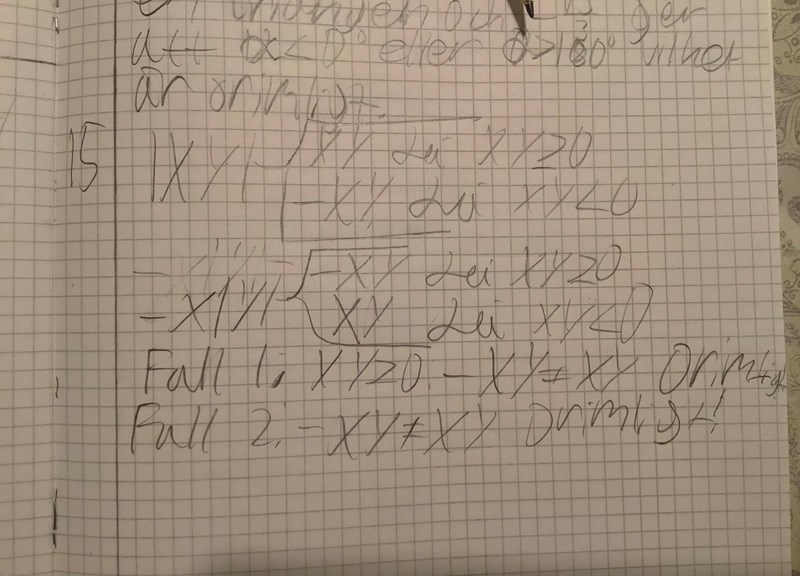 ger
att α<0° eller α>180° vilket
är orimligt.
15 |XY| XY då XY≥0
-XY då XY<0
-X|Y| -XY då XY≥0
XY då XY<0
Fall 1: XY≥0. -XY≠XY Orimligt
Fall 2: -XY≠XY Orimligt!